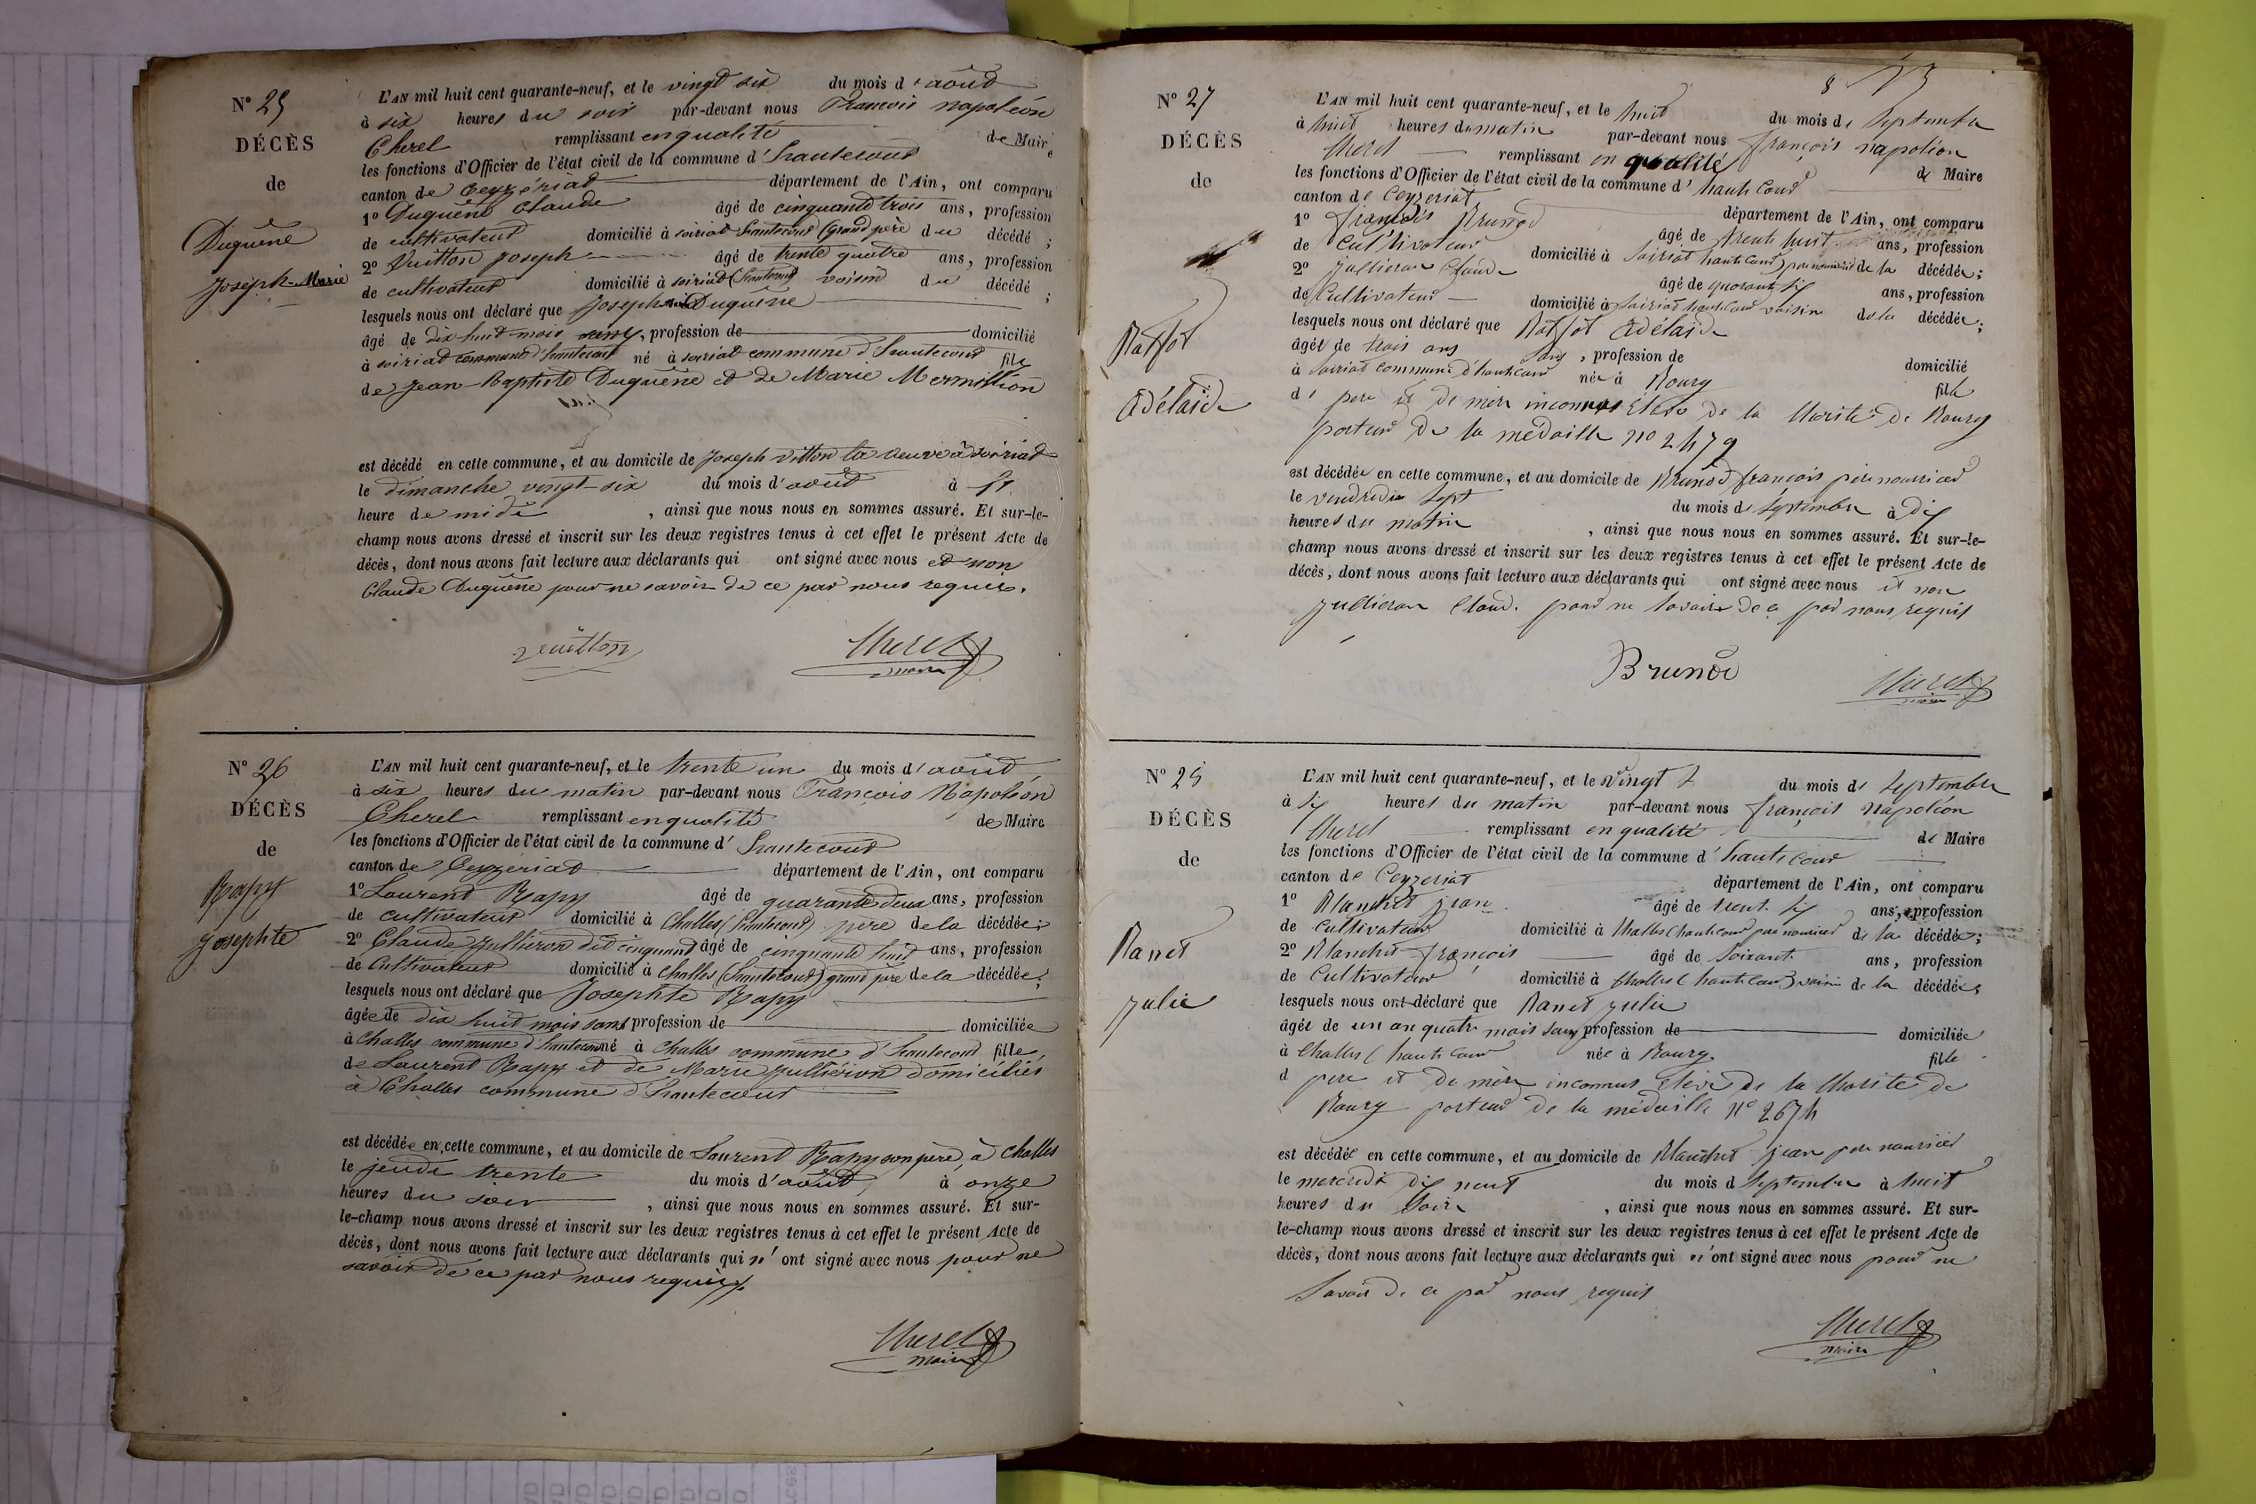 N° 25
DÉCÈS
de
Duguêne
Joseph-Marie
L'AN mil huit cent quarante-neuf, et le vingt six du mois d'août
à six heures du soir par-devant nous François Napoléon
Cherel remplissant en qualité de Maire
les fonctions d'Officier de l'état civil de la commune d'hautecourt
canton de Ceyzériat département de l'Ain, ont comparu
1° Duguêne Claude âgé de cinquante trois ans, profession
de cultivateur domicilié à soiriat hautecourt (grand père du décédé ;
2° Vuitton joseph âgé de trente quatre ans, profession
de cultivateur domicilié à soiriat (hautecourt) voisin du décédé ;
lesquels nous ont déclaré que Joseph Duguêne
âgé de dix huit mois sans, profession de domicilié
à soiriat commune d'hautecourt né à soiriat commune d'hautecourt fils
de Jean-Baptiste Duguêne et de Marie Mermillion
est décédé en cette commune, et au domicile de Joseph Vitton la veuve à soiriat
le dimanche vingt-six du mois d'août à
heure de midi , ainsi que nous nous en sommes assuré. Et sur-le-
champ nous avons dressé et inscrit sur les deux registres tenus à cet effet le présent Acte de
décès, dont nous avons fait lecture aux déclarants qui ont signé avec nous et non
Claude Duguêne pour ne savoir de ce par nous requis.
vuitton Cherel
maire
N° 26
DÉCÈS
de
Rapy
josephte
L'AN mil huit cent quarante-neuf, et le trente un du mois d'août
à six heures du matin par-devant nous François Napoléon
Cherel remplissant en qualité de Maire
les fonctions d'Officier de l'état civil de la commune d'hautecourt
canton de Ceyzériat département de l'Ain, ont comparu
1° Laurent Rapy âgé de quarante deux ans, profession
de cultivateur domicilié à Challes (hautecourt) père de la décédée ;
2° Claude jullieron dit cinquant âgé de cinquante huit ans, profession
de cultivateur domicilié à Challes (hautecourt) grand père de la décédée ;
lesquels nous ont déclaré que Josephte Rapy
âgée de dix huit mois sans profession de domiciliée
à Challes commune d'hautecourt né à Challes commune d'hautecourt fille
de Laurent Rapy et de Marie jullieron domiciliés
à Challes commune d'hautecourt
est décédée en cette commune, et au domicile de Laurent Rapy son père, à Challes
le jeudi trente du mois d'août, à onze
heures du soir , ainsi que nous nous en sommes assuré. Et sur-
le-champ nous avons dressé et inscrit sur les deux registres tenus à cet effet le présent Acte de
décès, dont nous avons fait lecture aux déclarants qui n'ont signé avec nous pour ne
savoir de ce par nous requis.
Cherel
maire
8
N° 27
DÉCÈS
de
Adélaide
L'AN mil huit cent quarante-neuf, et le huit du mois de septembre
à huit heures du matin par-devant nous françois napoléon
Cherel remplissant en qualité de Maire
les fonctions d'Officier de l'état civil de la commune d'hautecour
canton de Ceyzeriat département de l'Ain, ont comparu
1° françois Brunod âgé de trente huit ans, profession
de Cultivateur domicilié à soiriat hautecour) père nourricier de la décédée ;
2° jullieron Claude âgé de quarante six ans, profession
de Cultivateur domicilié à soiriat hautecour voisin de la décédée ;
lesquels nous ont déclaré que Adélaide
âgée de trois ans sans, profession de domicilié
à soiriat commune d'hautecour née à Bourg fille
de père et de mère inconnus élève de la Charité de Bourg
porteur de la médaille n° 2479
est décédée en cette commune, et au domicile de Brunod françois père nourricier
le vendredi sept du mois de septembre à dix
heures du matin , ainsi que nous nous en sommes assuré. Et sur-le-
champ nous avons dressé et inscrit sur les deux registres tenus à cet effet le présent Acte de
décès, dont nous avons fait lecture aux déclarants qui ont signé avec nous et non
jullieron Claude pour ne savoir de ce par nous requis
Brunod
Cherel
maire
N° 28
DÉCÈS
de
Ranet
julie
L'AN mil huit cent quarante-neuf, et le vingt du mois de septembre
à six heures du matin par-devant nous françois napoléon
Cherel remplissant en qualité de Maire
les fonctions d'Officier de l'état civil de la commune d'hautecour
canton de Ceyzeriat département de l'Ain, ont comparu
1° Blanchet jean âgé de trente six ans, profession
de cultivateur domicilié à Challes hautecour père nourricier de la décédée ;
2° Blanchet françois âgé de soixante ans, profession
de Cultivateur domicilié à Challes (hautecour) voisin de la décédée ;
lesquels nous ont déclaré que Ranet julie
âgée de un an quatre mois sans profession de domiciliée
à Challes (hautecour née à Bourg fille
d père et de mère inconnus élève de la Charité de
Bourg porteur de la médaille n° 2674
est décédée en cette commune, et au domicile de Blanchet jean père nourricier
le mercredi dix neuf du mois d septembre à huit
heures du soir , ainsi que nous nous en sommes assuré. Et sur-
le-champ nous avons dressé et inscrit sur les deux registres tenus à cet effet le présent Acte de
décès, dont nous avons fait lecture aux déclarants qui n'ont signé avec nous pour ne
savoir de ce par nous requis
Cherel
maire